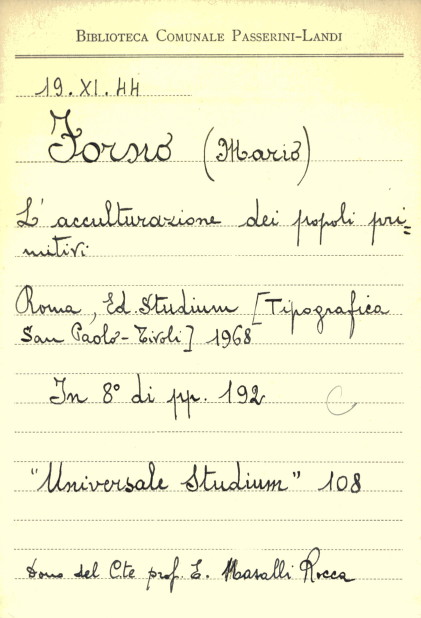 BIBLIOTECA COMUNALE PASSERINI-LANDI
19. XI. 44
Forno (Mario)
L' acculturazione dei popoli pri=
mitivi
Roma, Ed. Studium [Tipografica
San Paolo - Tivoli] 1968
In 8° di pp. 192
"Universale Studium" 108
Dono del C.te prof. E. Nasalli Rocca